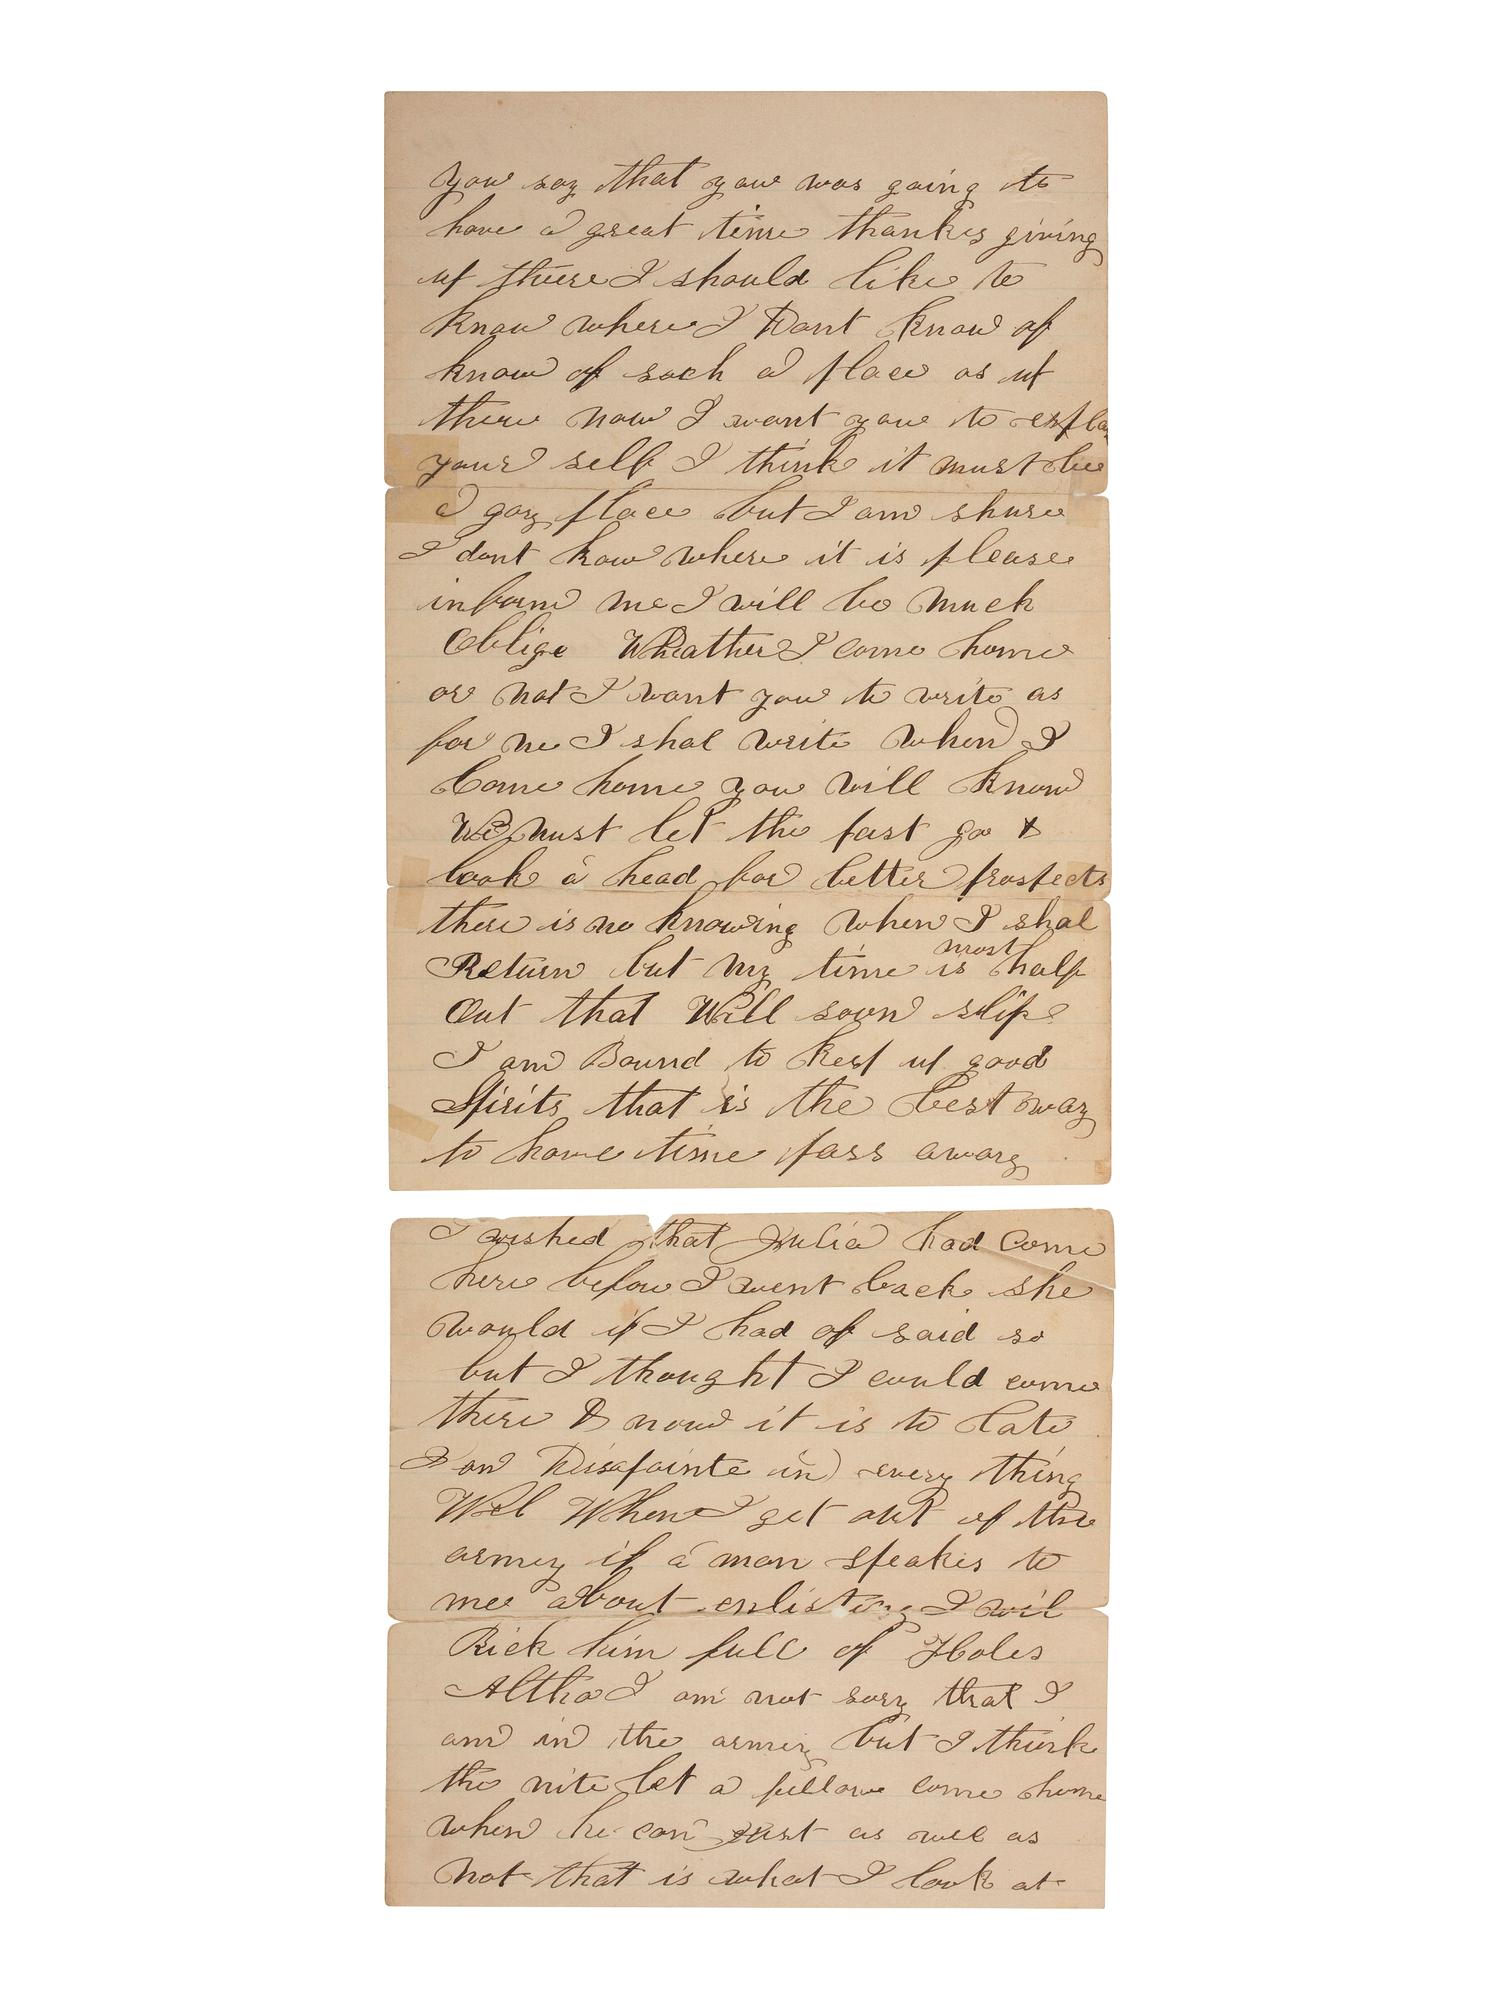 you say that you was going to
have a great time thankes giving
up there I should like to
know where I Dont know of
know of such a place as up
there now I want you to explai
your self I think it must be
a gay place but I am shure
I dont kow where it is please
inform me I will be much
Oblige Wheather I come home
or not I want you to write as
for me I shal write when I
Come home you will know
We must let the past go &
look a head for better prospects
there is no knowing when I shal
Return but my time is most half
Out that Will soon slip
I am Bound to keep up good
Spirits that is the best way
to have time pass away
I wished that Julia had come
here before I went back she
would if I had of said so
but I thought I could come
there & now it is to late
I am Disapointe in every thing
Wel When I get out of the
armey if a man speakes to
me about enlisting I wil
Kick him full of Holes
Altho I am not sory that I
am in the armey but I think
the mite let a fellow come home
when he can just as well as
not that is what I look at